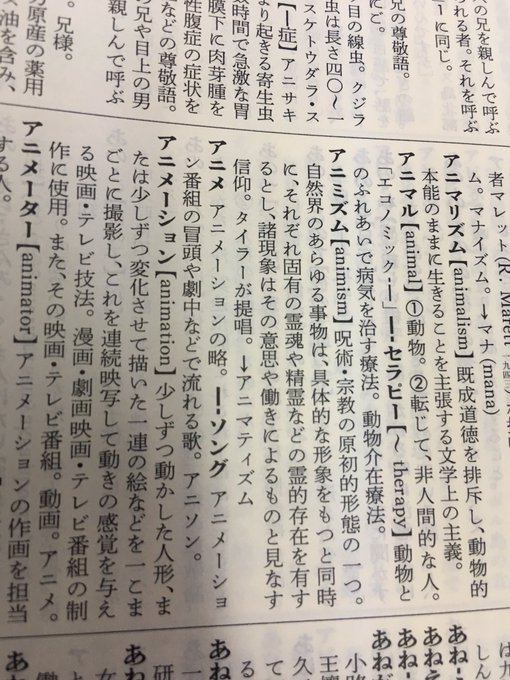 の兄を親しんで呼ぶ
られる者。それを呼ぶ
ー」に同じ。
兄の尊敬語。
にご。
目の線虫。クジラ
虫は長さ四〇〜一
スケトウダラ・ス
【―症】アニサキ
より起きる寄生虫
数時間で急激な胃
膜下に肉芽腫を
性腹症の症状を
などの尊敬語。
の兄や目上の男
親しんで呼ぶ
。兄様。
方原産の薬用
油を含み、
者マレット(R. Marett
ム。マナイズム。→マナ(mana)
アニマリズム【animalism】既成道徳を排斥し、動物的
本能のままに生きることを主張する文学上の主義。
アニマル【animal】①動物。②転じて、非人間的な人。
「エコノミック‐―」―‐セラピー【〜 therapy】動物と
のふれあいで病気を治す療法。動物介在療法。
アニミズム【animism】呪術・宗教の原初的形態の一つ。
自然界のあらゆる事物は、具体的な形象をもつと同時
に、それぞれ固有の霊魂や精霊などの霊的存在を有す
るとし、諸現象はその意思や働きによるものと見なす
信仰。タイラーが提唱。→アニマティズム
アニメ アニメーションの略。―‐ソング アニメーショ
ン番組の冒頭や劇中などで流れる歌。アニソン。
アニメーション【animation】少しずつ動かした人形、ま
たは少しずつ変化させて描いた一連の絵などを一こま
ごとに撮影し、これを連続映写して動きの感覚を与え
る映画・テレビ技法。漫画・劇画映画・テレビ番組の制
作に使用。また、その映画・テレビ番組。動画。アニメ。
アニメーター【animator】アニメーションの作画を担当
する人。
は九
あね‐
あねえ
あね‐
あねが
小路
久
て
あね
研
あね